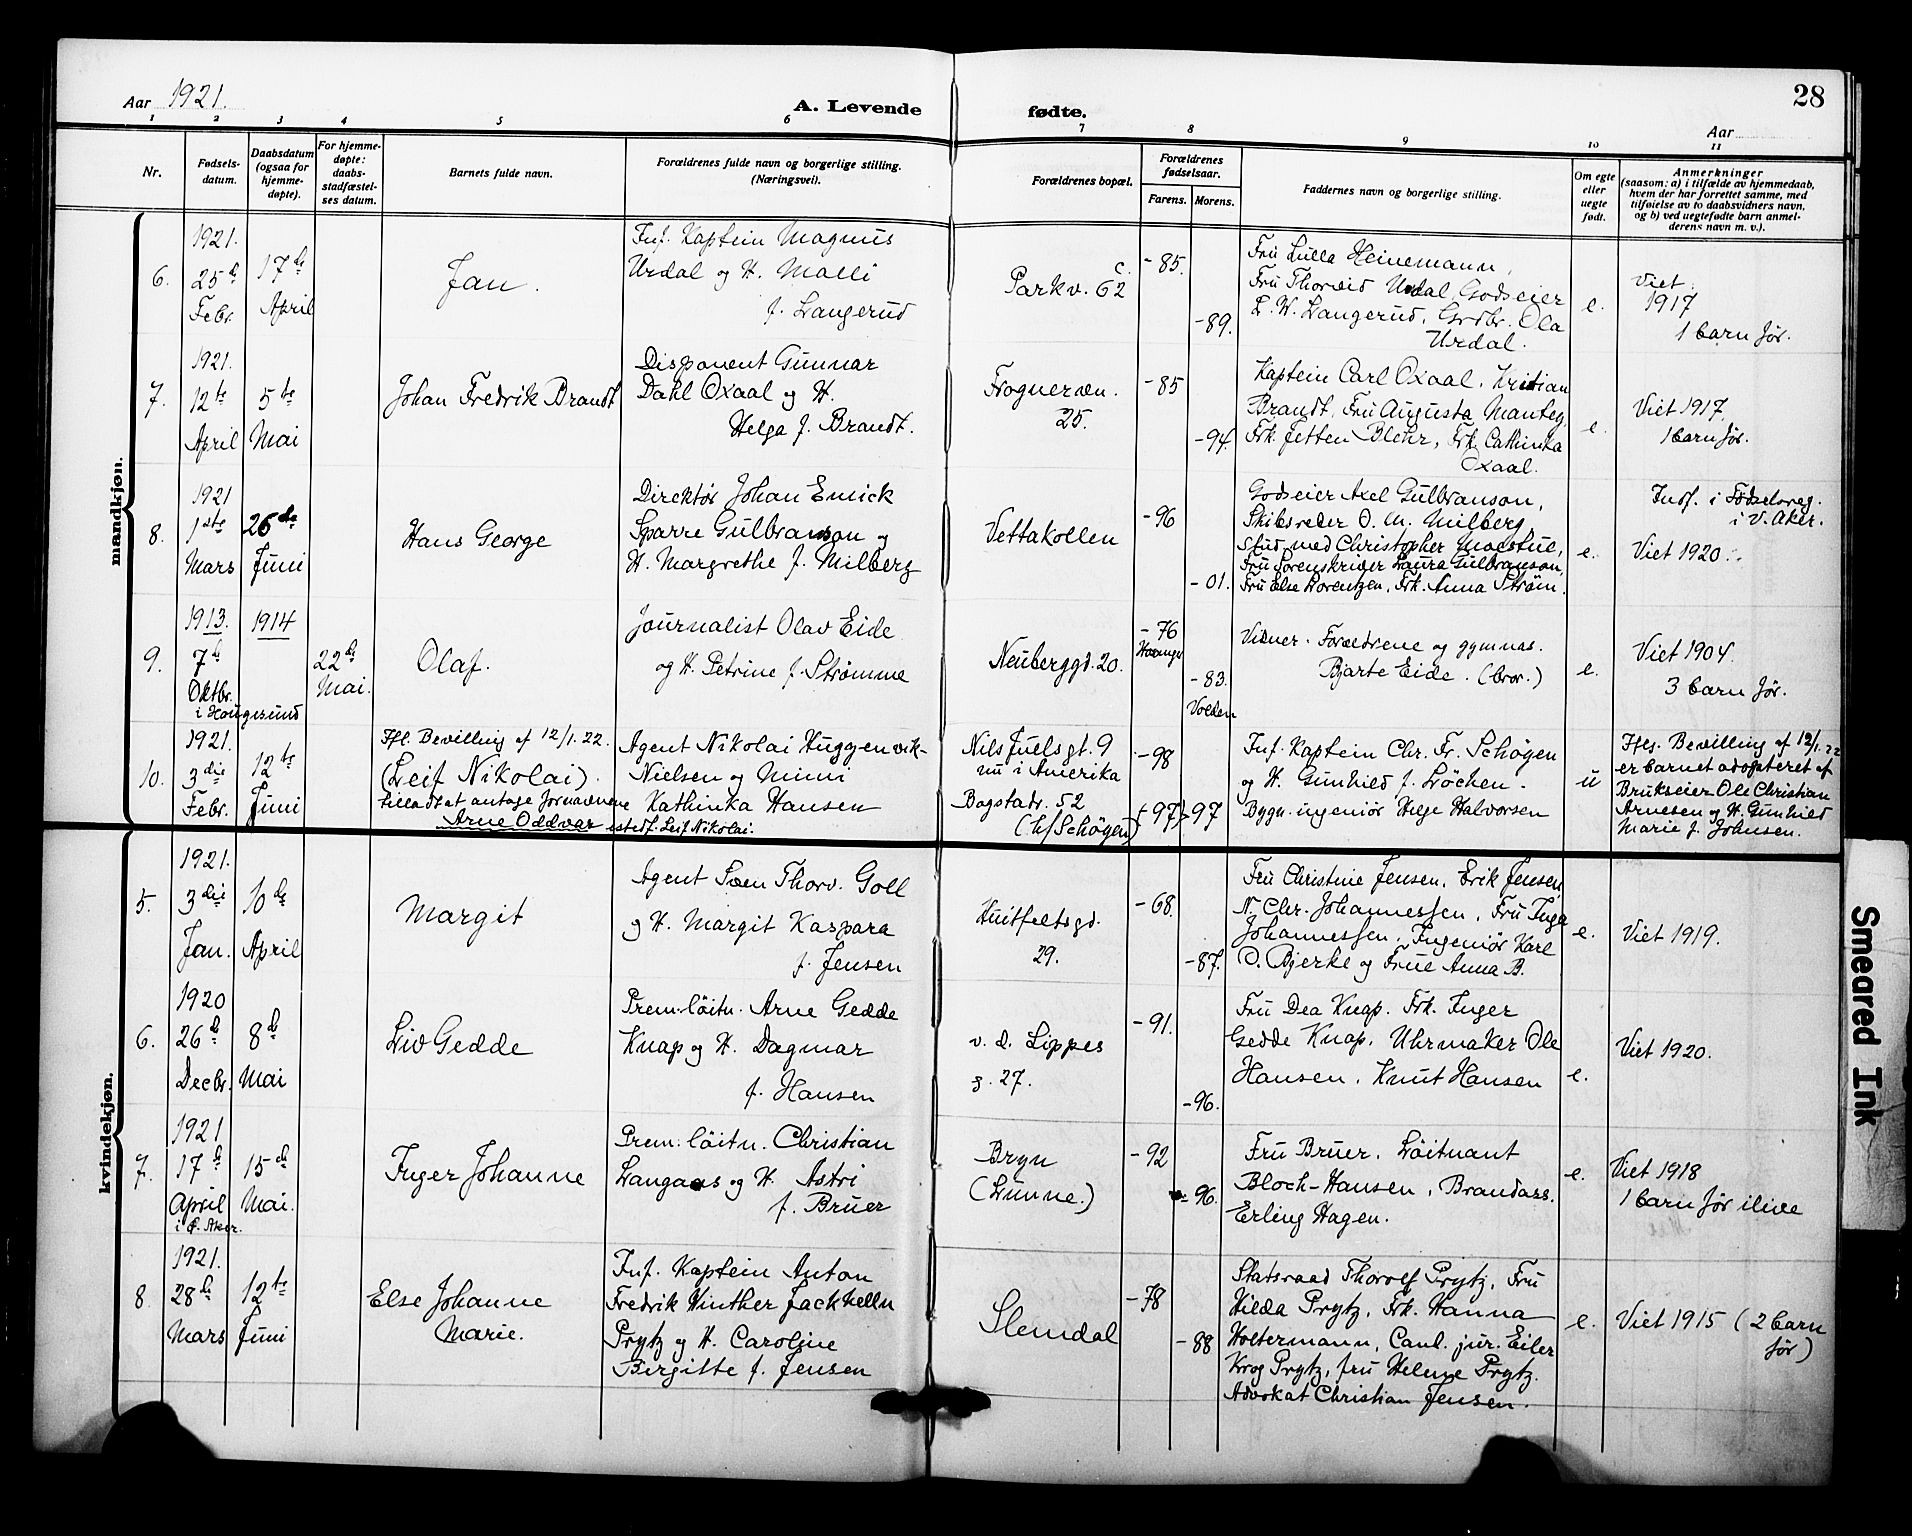 Aar 1921.
A. Levende fødte.
28
Aar
1 2 3 4 5 6 7 8 9 10 11
Nr.
Fødsels-
datum.
Daabsdatum
(ogsaa for
hjemme-
døpte).
For hjemme-
døpte:
daabs-
stadfæstel-
ses datum.
Barnets fulde navn.
Forældrenes fulde navn og borgerlige stilling.
(Næringsvei).
Forældrenes bopæl.
Forældrenes
fødselsaar.
Farens. Morens.
Faddernes navn og borgerlige stilling.
Om egte
eller
uegte
født.
Anmerkninger
(saasom: a) i tilfælde av hjemmedaab,
hvem der har forrettet samme, med
tilføielse av to daabsvidners navn,
og b) ved uegtefødte barn anmel-
derens navn m. v.).
mandkjøn.
6.
1921.
25de
Febr.
17de
April
Jan.
Inf. Kaptein Magnus
Urdal og H. Malli
f. Langerud
Parkv. 62 c.
-85.
-89.
Fru Lulla Heinemann,
Fru Thorvid Urdal, Godseier
L. W. Langerud, Grdbr. Ola
Urdal.
e.
Viet
1917
1 barn før.
7.
1921.
12te
April
5te
Mai
Johan Fredrik Brandt
Disponent Gunnar
Dahl Oxaal og H.
Helga f. Brandt.
Frognervn.
25.
-85
-94
Kaptein Carl Oxaal, Kristian
Brandt, Fru Augusta Mantey
Frk. Jetten Blehr, Frk. Cathinka
Oxaal.
e.
Viet 1917.
1 barn før.
8.
1921
1ste
Mars
26de
Juni
Hans George
Direktør Johan Emick
Sparre Gulbranson og
H. Margrethe f. Milberg
Vettakollen
-96
-01.
Godseier Axel Gulbranson,
Skibsreder O. M. Milberg,
Stud. med Christopher Moestue,
Fru Sorenskriver Laura Gulbranson,
Fru Else Lorentzen, Frk. Anna Strøm.
e.
Indf. i Fødselsreg.
i V. Aker.
Viet 1920.
9.
1913.
7de
Oktbr.
i Haugesund
1914
22de
Mai.
Olaf.
Journalist Olav Eide
og H. Petrine f. Strømme
Neuberggd. 20.
-76
-83.
Volden
Vidner. Forældrene og gymnas.
Bjarte Eide. (bror.)
e.
Viet 1904.
3 barn før.
10.
1921.
3die
Febr.
12te
Juni
Ifl. Bevilling af 12/1. 22.
(Leif Nikolai).
tilladt at antage fornavnene
Arne Oddvar istedf. Leif Nikolai.
Agent Nikolai Huggenvik-
Nielsen og Mimi
Kathinka Hansen
Nils Juels gt. 9
nu i Amerika
Bogstadv. 52
(h/ Schøgen)
-98
(97) -97
Inf. Kaptein Chr. Fr. Schøgen
og H. Gunhild f. Løchen.
Bygn. ingeniør Helge Halvorsen
u
Ifls. Bevilling af 12/1. 22
er barnet adopteret af
Brukseier Ole Christian
Arnesen og H. Gunhild
Marie f. Johnsen.
kvindekjøn.
5.
1921.
3die
Jan.
10de
April
Margit
Agent Sven Thorv. Goll
og H. Margit Kaspara
f. Jensen
Huitfeltsgd.
29.
-68.
-87.
Fru Christine Jensen, Erik Jensen,
N. Chr. Johannessen, Fru Inga
Johannessen, Ingeniør Karl
O. Bjerke og Frue Anna B.
e.
Viet 1919.
6.
1920
26de
Decbr.
8de
Mai
Liv Gedde
Prem.löitn. Arne Gedde
Knap og H. Dagmar
f. Hansen
v. d. Lippes
g. 27.
-91.
-96.
Fru Dea Knap. Frk. Inger
Gedde Knap, Uhrmaker Ole
Hansen, Knut Hansen
e.
Viet 1920.
7.
1921
17de
April
i Ø. Aker.
15de
Mai.
Inger Johanne
Prem: löitn. Christian
Langaas og H. Astri
f. Bruer
Bryn
(Lunne.)
-92
-96.
Fru Bruer, Löitnant
Bloch-Hansen, Brandass.
Erling Hagen.
e.
Viet 1918
1 barn før ilive
8.
1921.
28de
Mars
12te
Juni
Else Johanne
Marie.
Inf. Kaptein Anton
Fredrik Winther Jackhelln
Prytz og H. Caroline
Birgitte f. Jensen
Slemdal
-78
-88
Statsraad Thorolf Prytz, Fru
Hilda Prytz, Frk. Hanna
Holtermann, Cand. jur. Eiler
Krog Prytz, fru Helene Prytz.
Advokat Christian Jensen.
e.
Viet 1915 (2 barn
før)
Smeared Ink